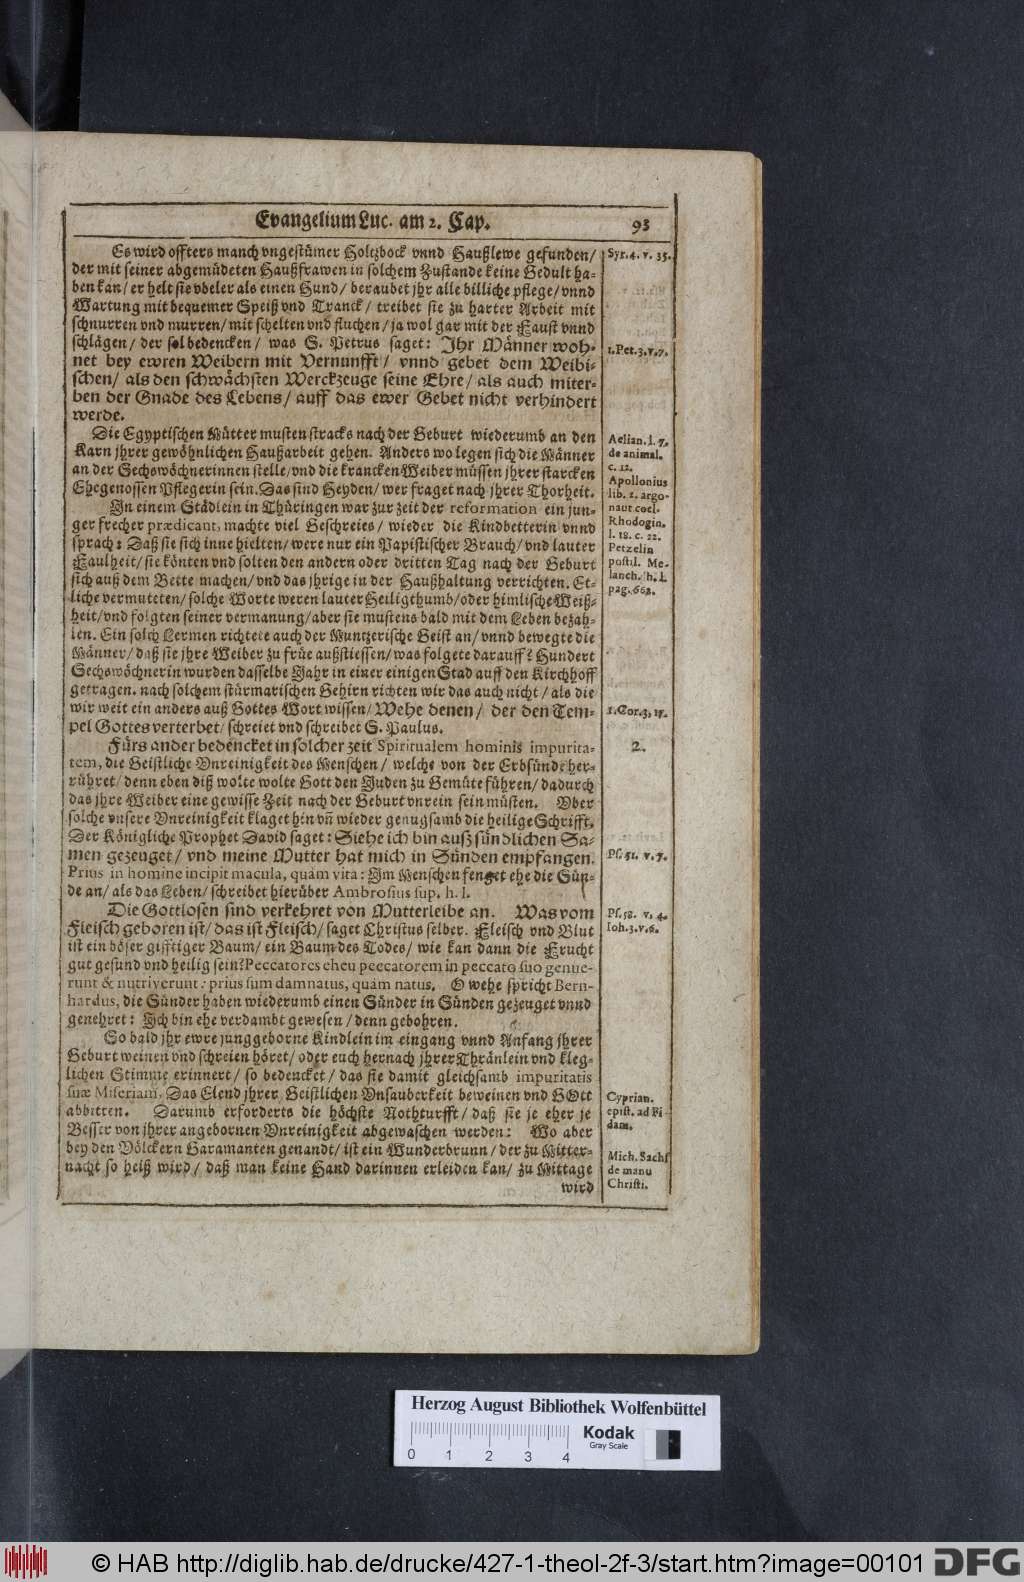 Evangelium Luc. am 2. Cap. 93
Es wird offters manch vngestümer Holtzbock vnnd Haußlewe gefunden/
der mit seiner abgemüdeten Haußfrawen in solchem Zustande keine Gedult ha-
ben kan/ er helt sie vbeler als einen Hund/ beraubet jhr alle billiche pflege/ vnnd
Wartung mit bequemer Speiß vnd Tranck/ treibet sie zu harter Arbeit mit
schnurren vnd murren/ mit schelten vnd fluchen/ ja wol gar mit der Faust vnnd
schlägen/ der sol bedencken/ was S. Petrus saget: Jhr Männer woh-
net bey ewren Weibern mit Vernunfft/ vnnd gebet dem Weibi-
schen/ als den schwächsten Werckzeuge seine Ehre/ als auch miter-
ben der Gnade des Lebens/ auff das ewer Gebet nicht verhindert
werde.
Die Egyptischen Mütter musten stracks nach der Geburt wiederumb an den
Karn jhrer gewöhnlichen Haußarbeit gehen. Anders wo legen sich die Männer
an der Sechswöchnerinnen stelle/ vnd die krancken Weiber müssen jhrer starcken
Ehegenossen Pflegerin sein. Das sind Heyden/ wer fraget nach jhrer Thorheit.
Jn einem Städlein in Thüringen war zur zeit der reformation ein jun-
ger frecher prædicant, machte viel Geschreies/ wieder die Kindbetterin vnnd
sprach: Daß sie sich inne hielten/ were nur ein Papistischer Brauch/ vnd lauter
Faulheit/ sie könten vnd solten den andern oder dritten Tag nach der Geburt
sich auß dem Bette machen/ vnd das jhrige in der Haußhaltung verrichten. Et-
liche vermuteten/ solche Worte weren lauter Heiligthumb/ oder himlische Weiß-
heit/ vnd folgten seiner vermanung/ aber sie mustens bald mit dem Leben bezah-
len. Ein solch Lermen richtete auch der Muntzerische Geist an/ vnnd bewegte die
Männer/ daß sie jhre Weiber zu früe außstiessen/ was folgete darauff? Hundert
Sechswöchnerin wurden dasselbe Jahr in einer einigen Stad auff den Kirchhoff
getragen. nach solchem stürmarischen Gehirn richten wir das auch nicht/ als die
wir weit ein anders auß Gottes Wort wissen/ Wehe denen/ der den Tem-
pel Gottes verterbet/ schreiet vnd schreibet S. Paulus.
Fürs ander bedencket in solcher zeit Spiritualem hominis impurita-
tem, die Geistliche Vnreinigkeit des Menschen/ welche von der Erbsünde her-
rühret/ denn eben diß wolte wolte Gott den Juden zu Gemüte führen/ dadurch
das jhre Weiber eine gewisse Zeit nach der Geburt vnrein sein müsten. Vber
solche vnsere Vnreinigkeit klaget hin vñ wieder genugsamb die heilige Schrifft.
Der Königliche Prophet David saget: Siehe ich bin auß sündlichen Sa-
men gezeuget/ vnd meine Mutter hat mich in Sünden empfangen.
Prius in homine incipit macula, quàm vita: Jm Menschen fenget ehe die Sün-
de an/ als das Leben/ schreibet hierüber Ambrosius sup. h. l.
Die Gottlosen sind verkehret von Mutterleibe an. Was vom
Fleisch geboren ist/ das ist Fleisch/ saget Christus selber. Fleisch vnd Blut
ist ein böser gifftiger Baum/ ein Baum des Todes/ wie kan dann die Frucht
gut gesund vnd heilig sein? Peccatores eheu peccatorem in peccato suo genue-
runt & nutriverunt: prius sum damnatus, quàm natus. O wehe spricht Bern-
hardus, die Sünder haben wiederumb einen Sünder in Sünden gezeuget vnnd
genehret: Jch bin ehe verdambt gewesen/ denn gebohren.
So bald jhr ewre junggeborne Kindlein im eingang vnnd Anfang jhrer
Geburt weinen vnd schreien höret/ oder euch hernach jhrer Thränlein vnd kleg-
lichen Stimme erinnert/ so bedencket/ das sie damit gleichsamb impuritatis
suæ Miseriam, Das Elend jhrer Geistlichen Vnsauberkeit beweinen vnd GOtt
abbitten. Darumb erforderts die höchste Nothturfft/ daß sie je eher je
Besser von jhrer angebornen Vnreinigkeit abgewaschen werden: Wo aber
bey den Völckern Garamanten genandt/ ist ein Wunderbrunn/ der zu Mitter-
nacht so heiß wird/ daß man keine Hand darinnen erleiden kan/ zu Mittage
wird
Syr. 4. v. 35.
1. Pet. 3. v. 7.
Aelian. l. 7.
de animal.
c. 12.
Apollonius
lib. 2. argo-
naut. coel.
Rhodogin.
l. 18. c. 22.
Petzelin
postil. Me-
lanch. h. l.
pag. 662.
1. Cor. 3, 17.
2.
Ps. 51. v. 7.
Ps. 58. v. 4.
Ioh. 3. v. 6.
Cyprian.
epist. ad Fi
dam.
Mich. Sachs
de manu
Christi.
Herzog August Bibliothek Wolfenbüttel
Kodak
Gray Scale
0 1 2 3 4
© HAB http://diglib.hab.de/drucke/427-1-theol-2f-3/start.htm?image=00101 DFG